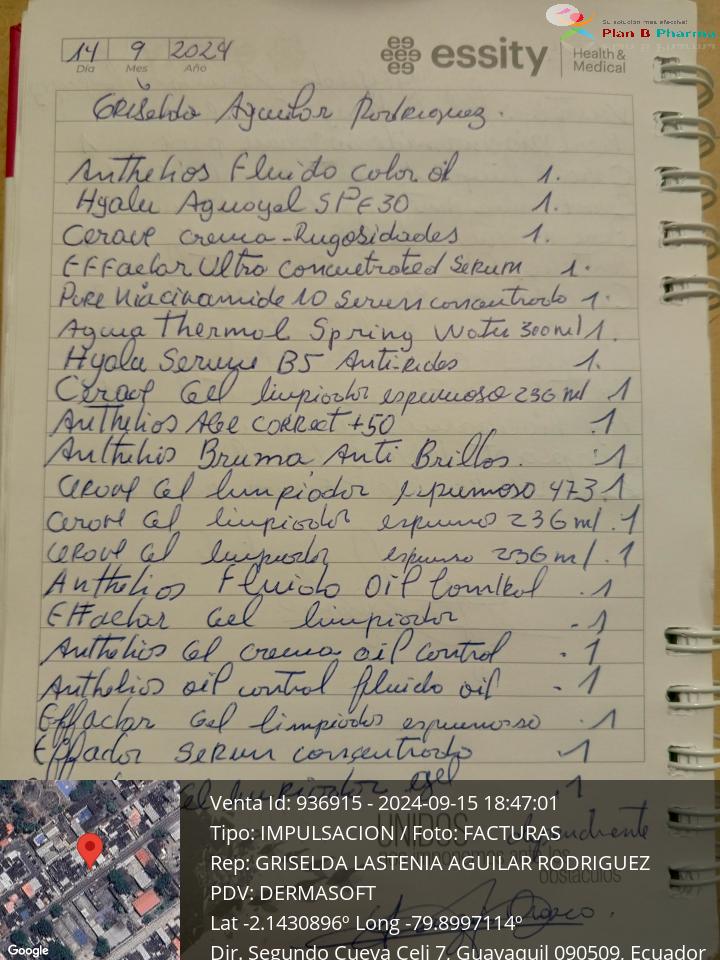 Su solución más efectiva!
Plan B Pharma
14 9 2024
Día Mes Año
essity
Health &
Medical
Griselda Aguilar Rodriguez.
Anthelios Fluido color oil 1.
Hyalu Aguagel SPF 30 1.
Cerave crema-Rugosidades 1.
Effaclar Ultra Concuetrated Serum 1.
Pure Niacinamide 10 Serum concentrado 1.
Agua Thermal Spring Water 300ml 1.
Hyalu Serum B5 Anti-rides 1.
Cerave Gel limpiador espumoso 236 ml 1
Anthelios Age Correct +50 .1
Anthelios Bruma Anti Brillos. .1
Cerave Gel limpiador espumoso 473.1
Cerave Gel limpiador espumo 236 ml .1
Cerave Gel limpiador espumo 236 ml .1
Anthelios Fluido Oil Control .1
Effaclar Gel limpiador .1
Anthelios Gel crema oil control .1
Anthelios oil control fluido oil .1
Effaclar Gel limpiador espumosso .1
Effador Serum concentrado .1
Gel limpiador .1
UNIDOS
obstáculos
Venta Id: 936915 - 2024-09-15 18:47:01
Tipo: IMPULSACION / Foto: FACTURAS
Rep: GRISELDA LASTENIA AGUILAR RODRIGUEZ
PDV: DERMASOFT
Lat -2.1430896º Long -79.8997114º
Dir. Segundo Cueva Celi 7, Guayaquil 090509, Ecuador
Google